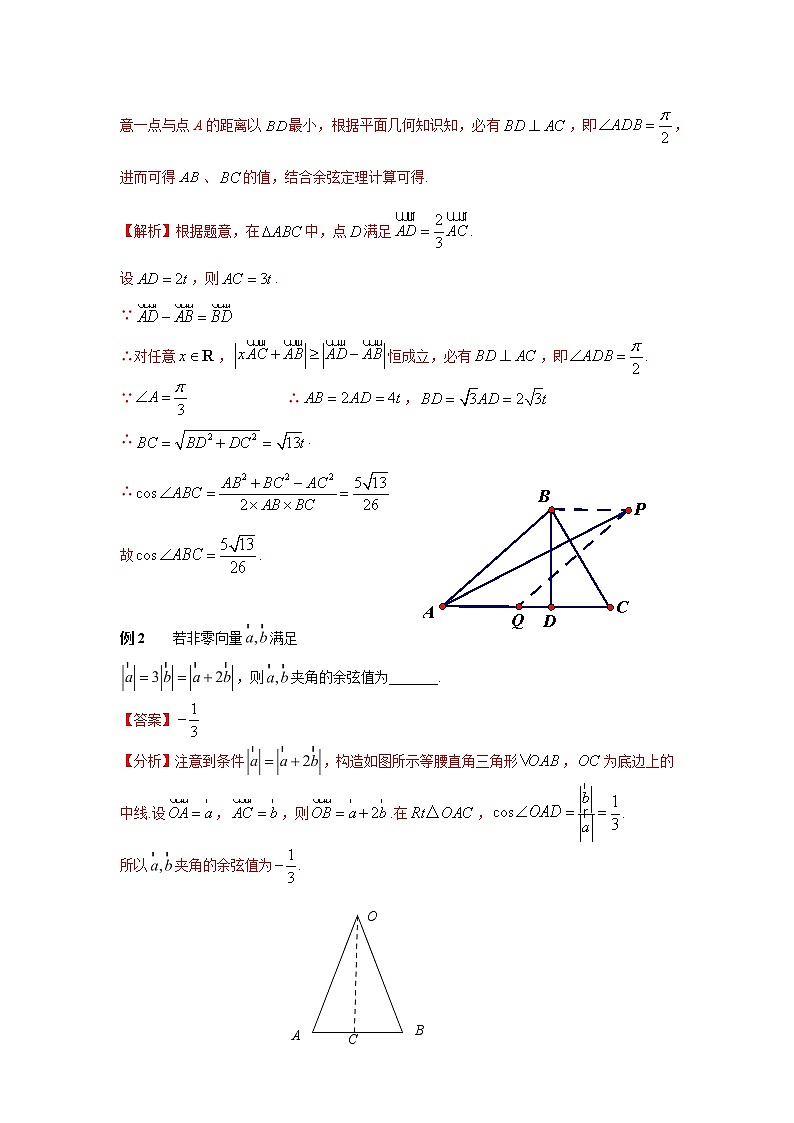 意一点与点 A 的距离以 BD 最小，根据平面几何知识知，必有 BD ⊥ AC ，即∠ADB = π/2 ，
进而可得 AB 、 BC 的值，结合余弦定理计算可得.
【解析】根据题意，在 ΔABC 中，点 D 满足 AD = 2/3 AC .
设 AD = 2t ，则 AC = 3t .
∵ AD − AB = BD
∴对任意 x ∈ R ， |xAC + AB| ≥ |AD − AB| 恒成立，必有 BD ⊥ AC ，即∠ADB = π/2 .
∵ ∠A = π/3 ∴ AB = 2AD = 4t ， BD = √3AD = 2√3t
∴ BC = √(BD² + DC²) = √13t .
∴ cos∠ABC = (AB² + BC² − AC²)/(2 × AB × BC) = 5√13/26
故 cos∠ABC = 5√13/26 .
B
P
A
Q
D
C
例 2 若非零向量 a, b 满足
|a| = 3|b| = |a + 2b| ，则 a, b 夹角的余弦值为_______.
【答案】− 1/3
【分析】注意到条件 |a| = |a + 2b| ，构造如图所示等腰直角三角形 VOAB ， OC 为底边上的
中线.设 OA = a ， AC = b ，则 OB = a + 2b .在 Rt△OAC ， cos∠OAD = |b|/|a| = 1/3 .
所以 a, b 夹角的余弦值为 − 1/3 .
O
A
C
B